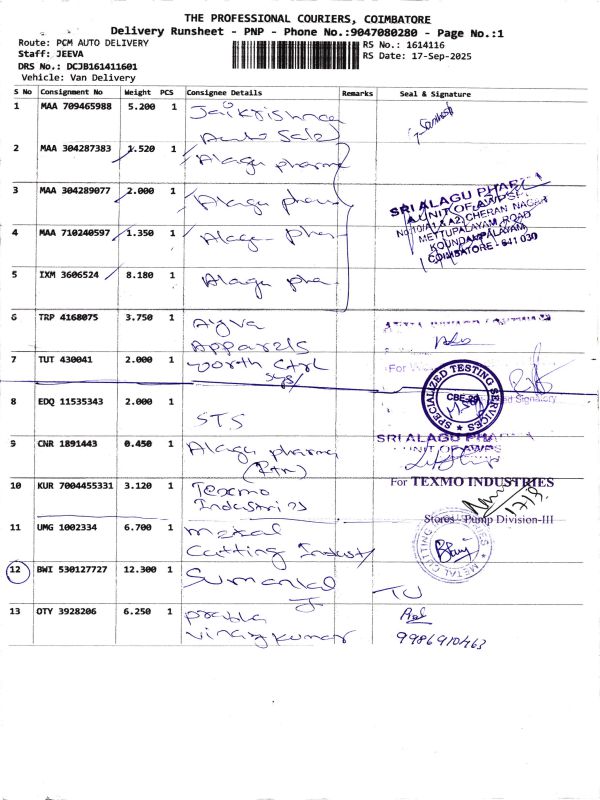 THE PROFESSIONAL COURIERS, COIMBATORE
Delivery Runsheet - PNP - Phone No.:9047080280 - Page No.:1
Route: PCM AUTO DELIVERY
Staff: JEEVA
DRS No.: DCJB161411601
Vehicle: Van Delivery
RS No.: 1614116
RS Date: 17-Sep-2025
S No Consignment No Weight PCS Consignee Details Remarks Seal & Signature
1 MAA 709465988 5.200 1 Jaikrishna
Auto Sale
2 MAA 304287383 1.520 1 Alagu pharma
3 MAA 304289077 2.000 1 Alagu pha
SRI ALAGU PHARMA
A UNIT OF AWPS
No.10(A1 & A2) CHERAN NAGAR
METTUPALAYAM ROAD
KOUNDAMPALAYAM
COIMBATORE - 641 030
4 MAA 710240597 1.350 1 Alagu pha
5 IXM 3606524 8.180 1 Alagu pha
6 TRP 4168075 3.750 1
Apparels
7 TUT 430041 2.000 1 worth
For
SPECIALIZED TESTING SERVICES
CBE-29
Signatory
8 EDQ 11535343 2.000 1 STS
9 CNR 1891443 0.450 1 Alagu pharma
(Rtn)
SRI ALAGU PHA
UNIT OF AWPS
10 KUR 7004455331 3.120 1 Texmo
Industries
For TEXMO INDUSTRIES
17/9
Stores - Pump Division-III
11 UMG 1002334 6.700 1 Metal
Cutting Industry
METAL CUTTING
12 BWI 530127727 12.300 1
13 OTY 3928206 6.250 1 prabha
vinay kumar
9986910463